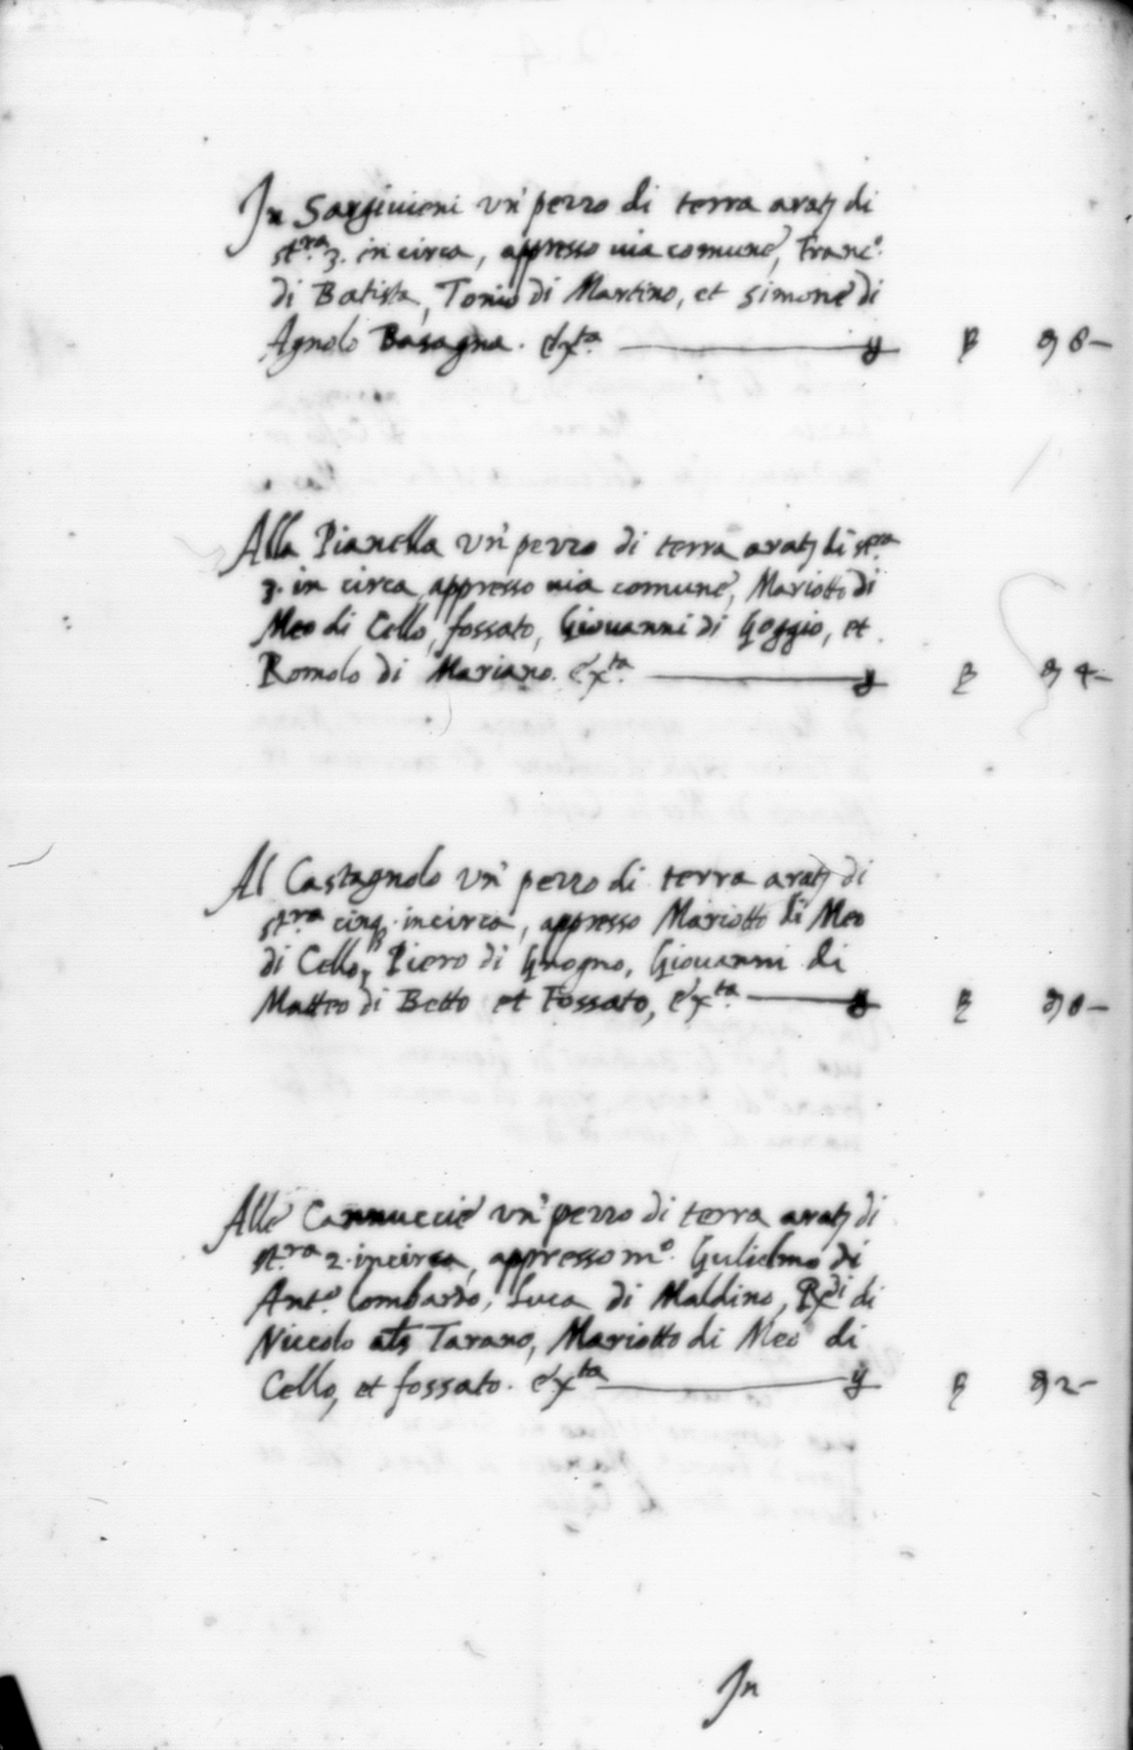 In Sargiuieni un' pezzo di terra aratª di
stra 3. in circa, appresso uia comune, Franc.º
di Batista, Tonio di Martino, et Simone di
Agnolo Basagna. &xta
Alla Pianella un' pezzo di terra aratª di stra
3. in circa appresso uia comune, Mariotto di
Meo di Cello, fossato, Giouanni di Goggio, et
Romolo di Mariano. &xta 4-
Al Castagnolo un' pezzo di terra aratª di
stra cinqª incirca, appresso Mariotto di Meo
di Cello, Piero di Grogno, Giouanni di
Matteo di Betto et Fossato, &xta
Alle Cannuccie un' pezzo di terra aratª di
stra 2. incirca, appresso mº. Gulielmo di
Antº. lombardo, Luca di Maldino, Redi di
Niccolo als Tarano, Mariotto di Meo di
Cello, et fossato. &xta 2-
In